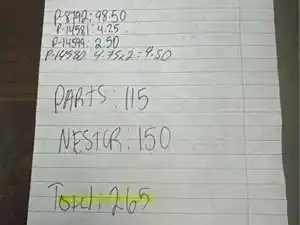 P-8792: 98.50
P-14581: 4.25
P-14599: 2.50
P-14580 4.75x2=9.50
PARTS: 115
NESTOR: 150
Total: 265